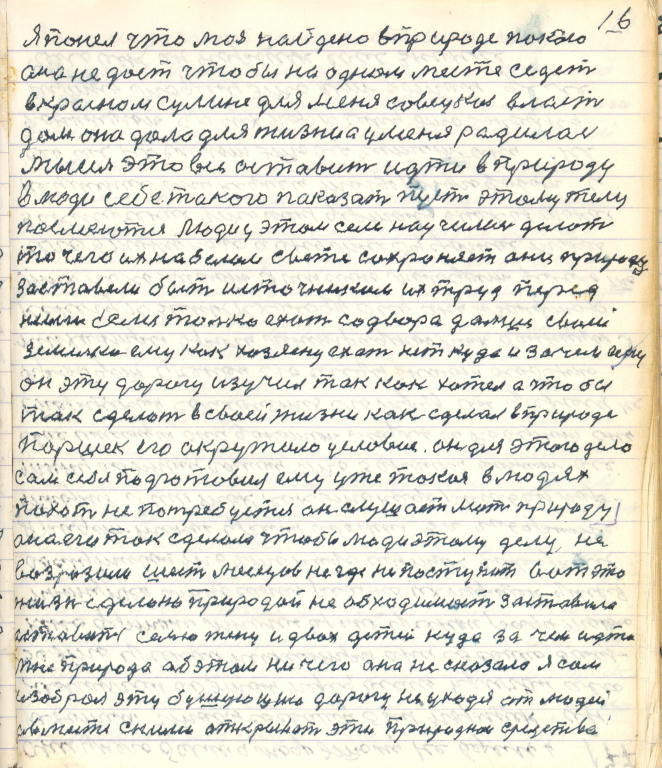 16
Я понел что моя найдено в природе покою
она не дост чтобы на одном месте седет
в красном сулине для меня совецкая власт
дом она дала для жизни а у меня радилас
мысля это всё оставит идти в природу
в люди себе такого паказат пуст этому телу
посмеютця люди у этом селе научилис делат
то чего их на белом свете сохроняет они природу
заставели быт источником их труд перед
ними были только ехат со двора до своей
земельке ему как хозяену ехат неткуда и зачем ему
он эту дорогу изучил так как хотел а чтобы
так сделат в своей жизни как сделал в природе
Паршек его окружило условие. он для этого дело
сам себя подготовил ему уже такоя в людях
похот не потребуетця он слушает мат природу
она его так сделала чтобы люди этому делу не
возрозили шест месецов не где не поступат вот это
жизн сделано природой не обходимост заставила
оставит семю жену и двох детей куда за чем идти
мне природа об этом ни чего она не сказала я сам
изоброл эту бушующию дорогу не уходя от людей
а вместе с ними открыват эти природная средства